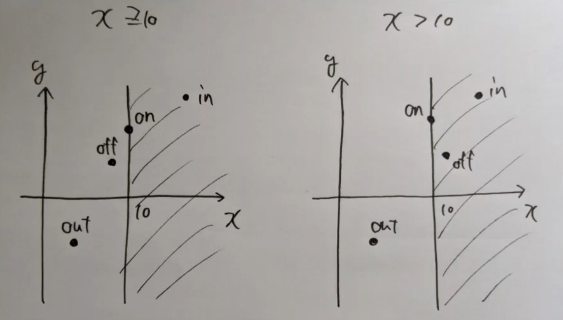 x ≧ 10
y
in
on
off
10
x
out
x > 10
y
in
on
off
10
x
out